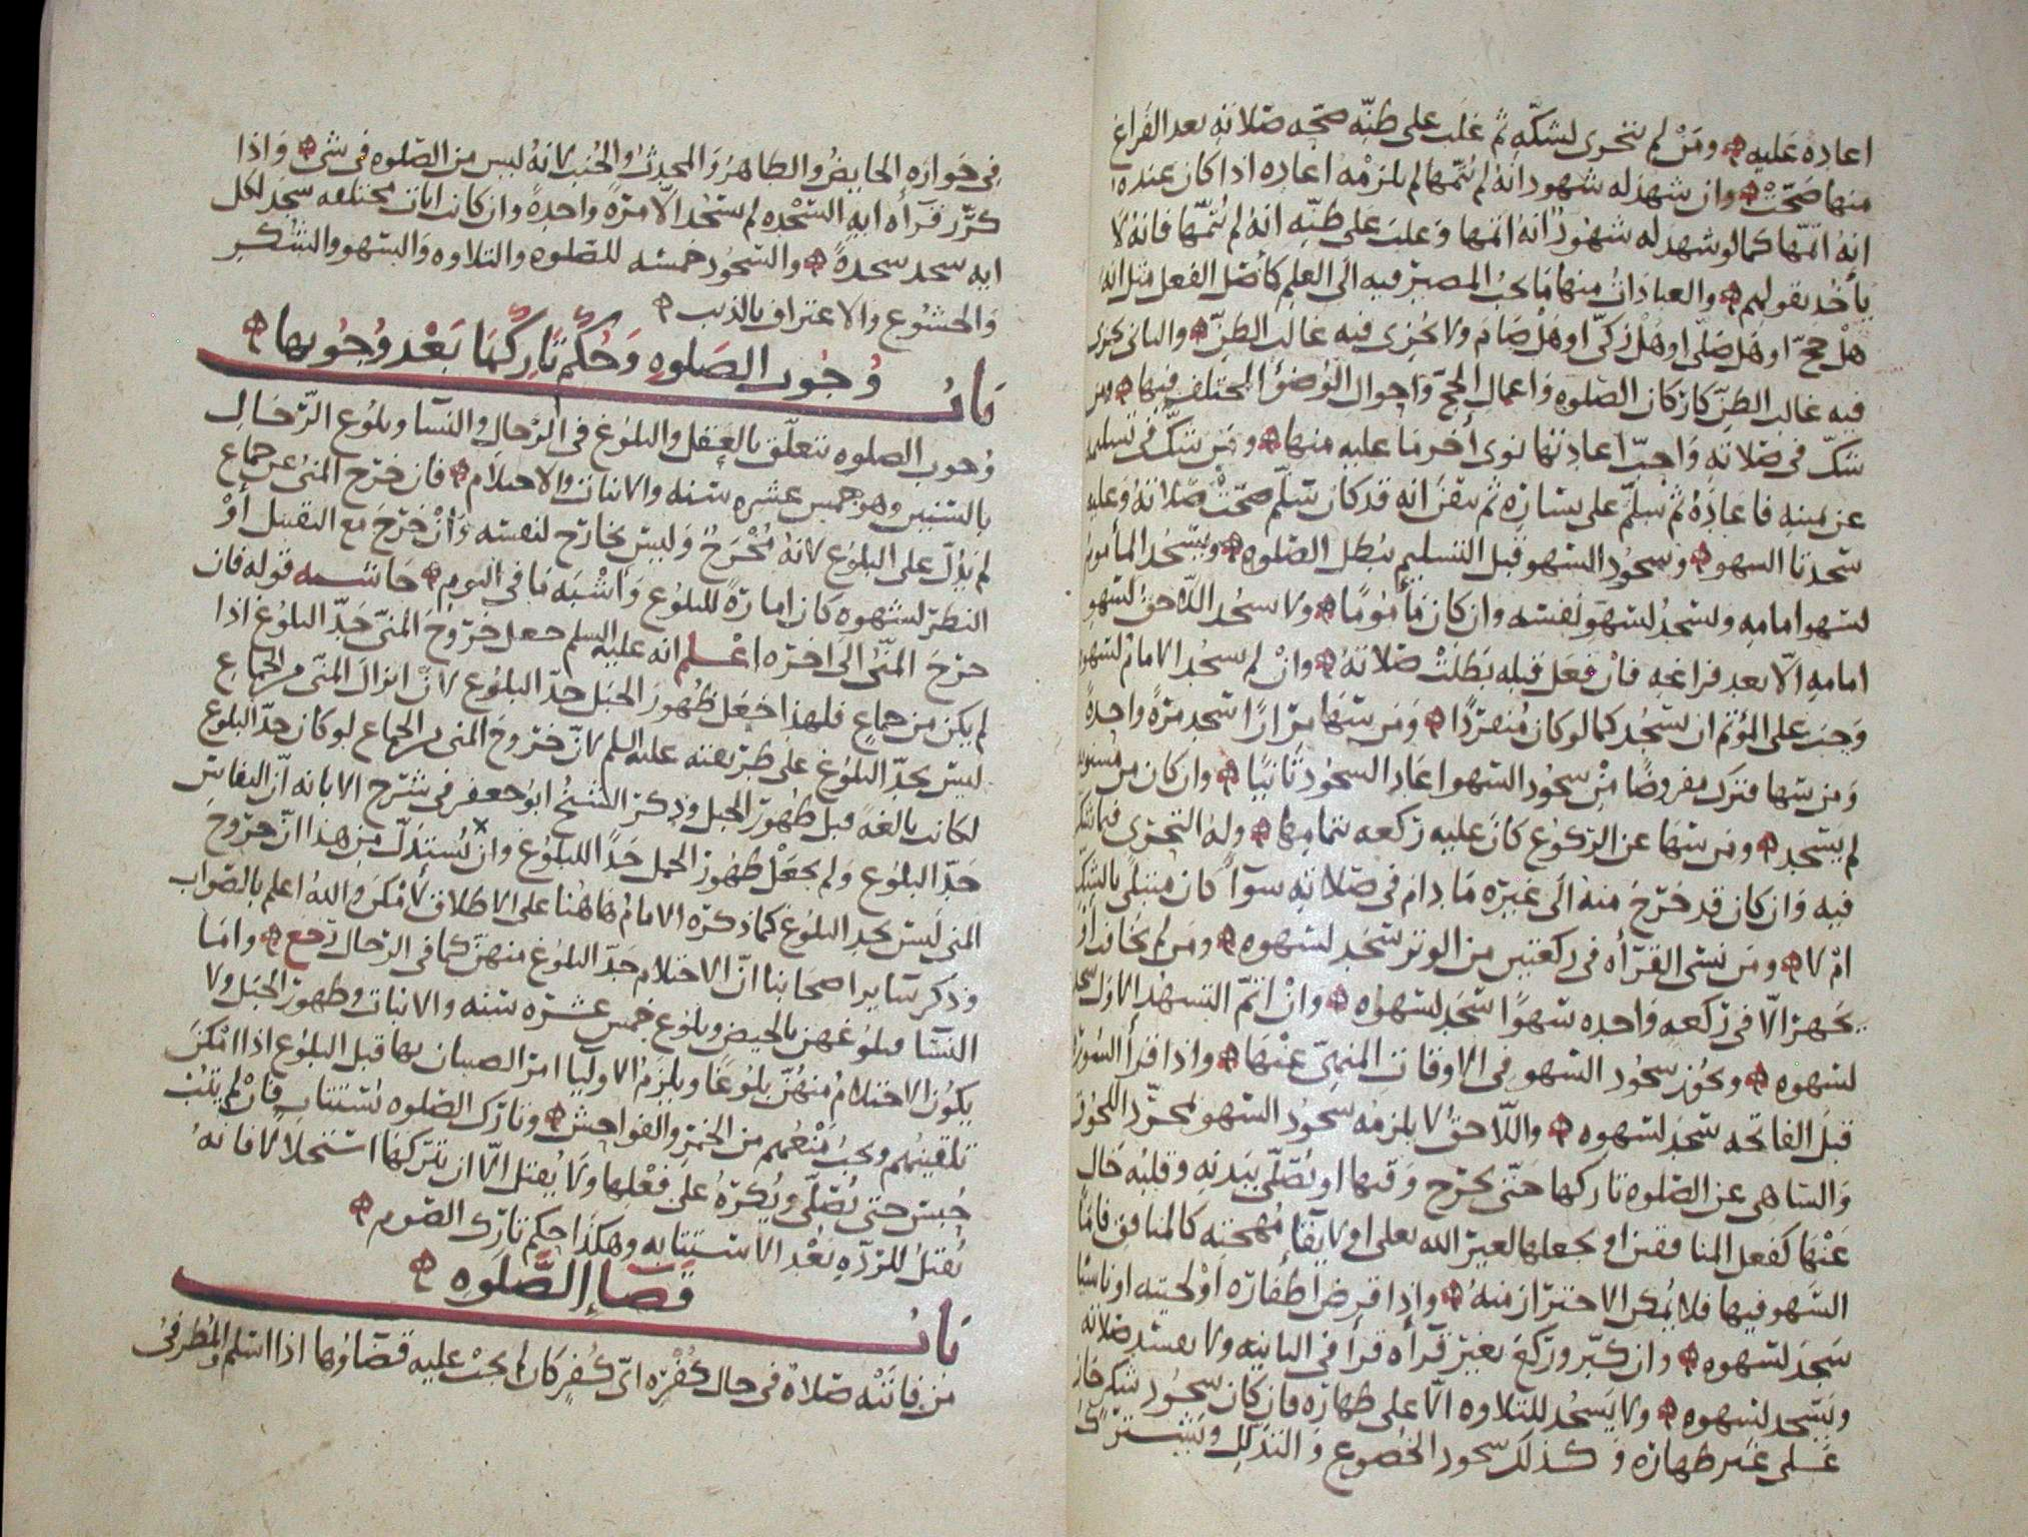 اعادة عليه ومن لم يتحرى لشكه ثم غلب على ظنه صحة صلاته بعد الفراغ
منها صحت وان شهد له شهود انه لم يتمها لم يلزمه اعادة اذا كان عنده
انه اتمها كما لو شهد له شهود انه اتمها وغلب على ظنه انه لم يتمها فانه لا
يأخذ بقولهم والعبادات منها ما يجب المصير فيه الى العلم كأصل الفعل مثل انه
هل حج او هل صلى او هل زكى او هل صام ولا يجزي فيه غالب الظن والثاني يجزي
فيه غالب الظن كاركان الصلوة واعمال الحج واحوال الوضؤ المختلف فيها ومن
شك في صلاته واحب اعادتها نوى أخر ما عليه منها ومن شك في تسليمه
عن يمينه فاعاده ثم سلم على يساره ثم تيقن انه قد كان سلم صحت صلاته وعليه
سجدتا السهو وسجود السهو قبل التسليم يبطل الصلوة ويسجد المأموم
لسهو امامه ولسجد لسهو نفسه وان كان مأموما ولا يسجد اللاحق لسهو
امامه الا بعد فراغه فان فعل قبله بطلت صلاته وان لم يسجد الامام لسهوه
وجب على المؤتم ان يسجد كما لو كان منفردا ومن سها مرارا سجد مرة واحدة
ومن سها فترك مفروضا من سجود السهو اعاد السجود ثانيا وان كان من مسنونه
لم يسجد ومن سها عن الركوع كان عليه ركعة بتمامها وله التحري فيما شك
فيه وان كان قد خرج منه الى غيره ما دام في صلاته سوآ كان مبتلى بالشك
ام لا ومن نسي القرأة في ركعتين من الوتر سجد لسهوه ومن لم يخافت او
يجهر الا في ركعة واحدة سهوا سجد لسهوه وان اتم التشهد الاول سجد
لسهوه ويجوز سجود السهو في الاوقات المنهي عنها واذا قرأ السورة
قبل الفاتحة سجد لسهوه واللاحق لا يلزمه سجود السهو لمجرد اللحوق
والساهي عن الصلوة تاركها حتى يخرج وقتها او يصلي ببدنه وقلبه خال
عنها كفعل المنافقين او يجعلها لغير الله تعلى او لا يقآ مهجته كالمنافق فاما
السهو فيها فلا يمكن الاحتراز منه واذا قرض أظفاره او لحيته او ناسيا
سجد لسهوه وان كبر وركع بغير قرأة قرأ في الثانية ولا يفسد صلاته
ويسجد لسهوه ولا يسجد للتلاوة الا على طهارة فان كان سجود شكر جاز
على غير طهارة وكذلك سجود الخضوع والتذلل ويشترك
في جوازه الحايض والطاهر والمحدث والجنب لانه ليس من الصلوة في شي واذا
كرر قرأة اية السجدة لم يسجد الا مرة واحدة وان كانت ايات مختلفة سجد لكل
اية سجد سجدة والسجود خمسة للصلوة والتلاوة والسهو والشكر
والخشوع والاعتراف بالذنب
باب وجوب الصلوة وحكم تاركها بعد وجوبها
وجوب الصلوة تتعلق بالعقل والبلوغ في الرجال والنسآ وبلوغ الرجال
بالسنين وهو خمس عشرة سنة والانبات والاحتلام فان خرج المني عن جماع
لم يدل على البلوغ لانه مخرج وليس بخارج لنفسه وان خرج مع التقبيل أو
النظر لشهوة كان امارة للبلوغ واشبه ما في النوم حاشية قوله فان
خرج المني الى آخره اعلم انه عليه السلم جعل خروج المني حد البلوغ اذا
لم يكن من جماع فلهذا جعل ظهور الحبل حد البلوغ لان انزال المني من الجماع
ليس بحد البلوغ على طريقته عليه السلم لان خروج المني من الجماع لو كان حد البلوغ
لكانت بالغة قبل ظهور الحبل وذكر الشيخ ابو جعفر في شرح الابانة ان النفاس
حد البلوغ ولم يجعل ظهور الحمل حدا للبلوغ وان يستدل من هذا ان خروج
المني ليس بحد البلوغ كما ذكره الامام هاهنا على الاطلاق لأمكن والله اعلم بالصواب
وذكر ساير اصحابنا ان الاحتلام حد البلوغ منهن كما في الرجال رجع واما
النسآ فبلوغهن بالحيض وبلوغ خمس عشرة سنة والانبات وظهور الحبل ولا
يكون الاحتلام منهن بلوغا ويلزم الاوليا امر الصبيان بها قبل البلوغ اذا امكن
تلقينهم ويجب منعهم من الخمر والفواحش وتارك الصلوة يستتاب فان لم يتب
حبس حتى يصلي ويكره على فعلها ولا يقتل الا ان يتركها استحلالا فانه
يقتل للردة بعد الاستتابة وهكذا حكم تارك الصوم
باب قضاء الصلوة
من فاتته صلاة في حال كفره اي كفر كان لم يجب عليه قضاؤها اذا اسلم والمطرفي